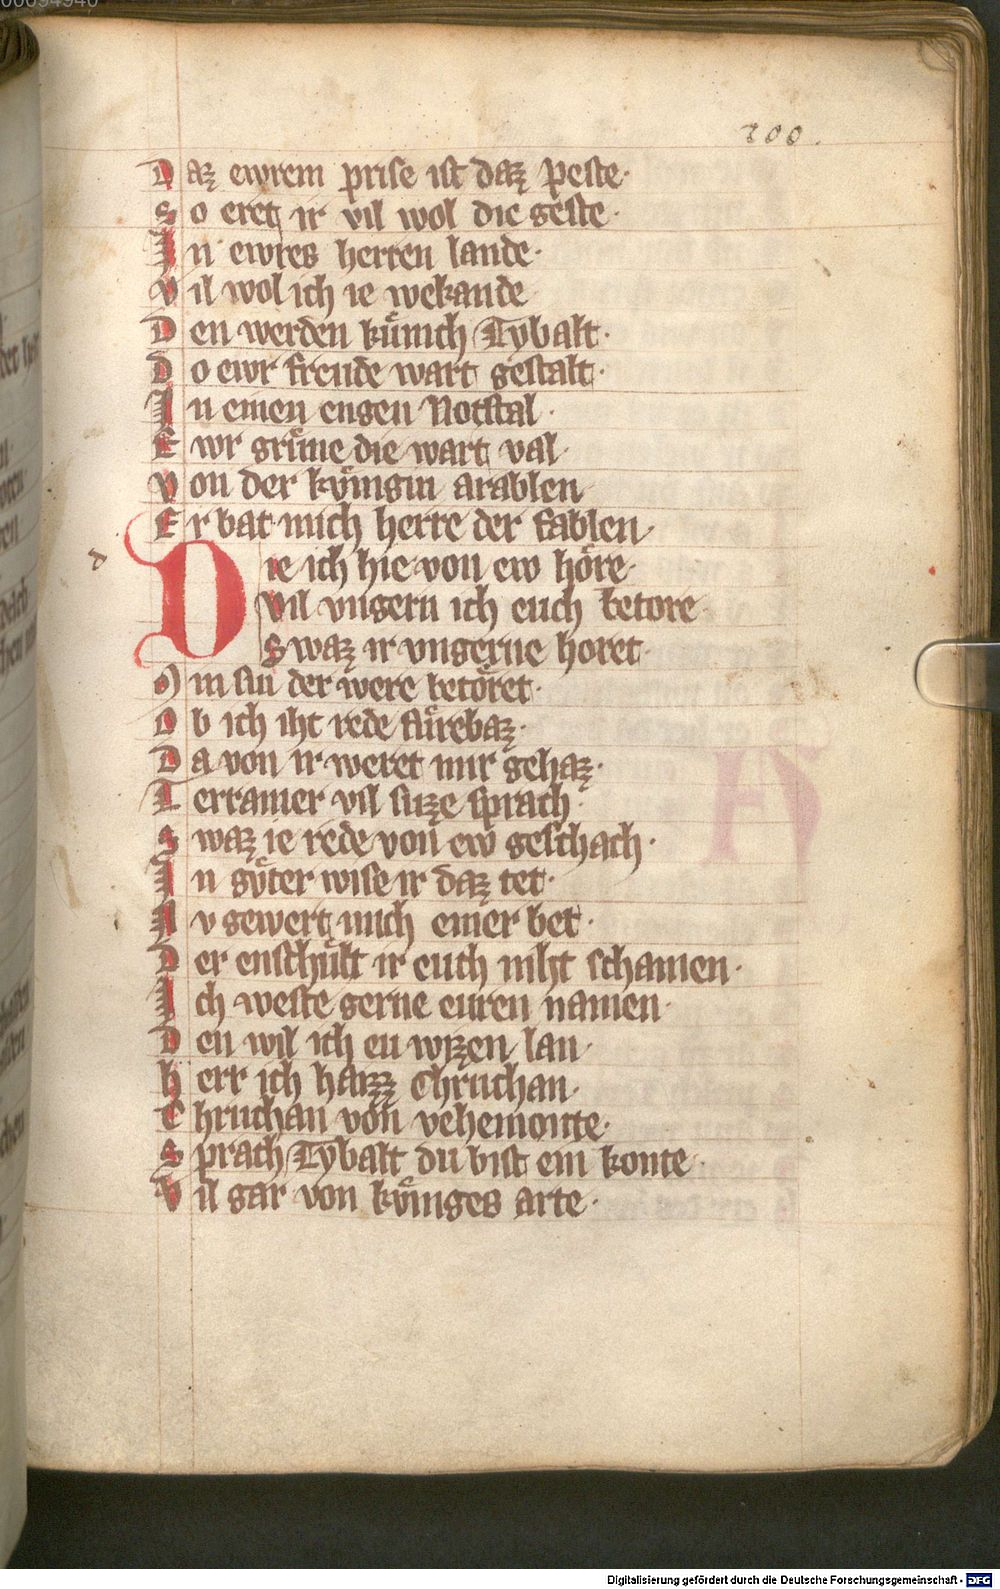 200.
Daz ewrem prise ist daz peste·
So eret ir vil wol die geste·
In ewres herren lande·
Vil wol ich ie wekande
Den werden kuͤnich Tybalt·
Do ewr freude wart gestalt·
In einen engen Notstal·
Ewr gruͤne die wart val·
Von der kyͤnigin arablen
Er bat mich herre der fablen
d
Die ich hie von ew hoͤre·
Vil vngern ich euch betore·
Swaz ir vngerne horet·
Min sin der were betoͤret·
Ob ich iht rede fuͤrebaz·
Da von ir weret mir gehaz·
Terramer vil suze sprach·
Swaz ie rede von ew geschach·
In guͤter wise ir daz tet·
Nv gewert mich einer bet·
Der enschuͤlt ir euch niht schamen·
Ich weste gerne euren namen·
Den wil ich eu wizen lan·
Herr ich haizz Chruchan·
Chruchan von vehemonte·
Sprach Tybalt du bist ein konte·
Vil gar von kyͤniges arte·
Digitalisierung gefördert durch die Deutsche Forschungsgemeinschaft - DFG